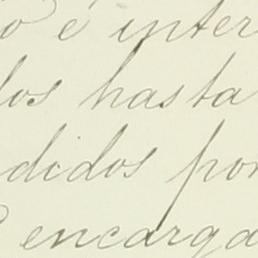 o é inter
los hasta
didos por
encarga